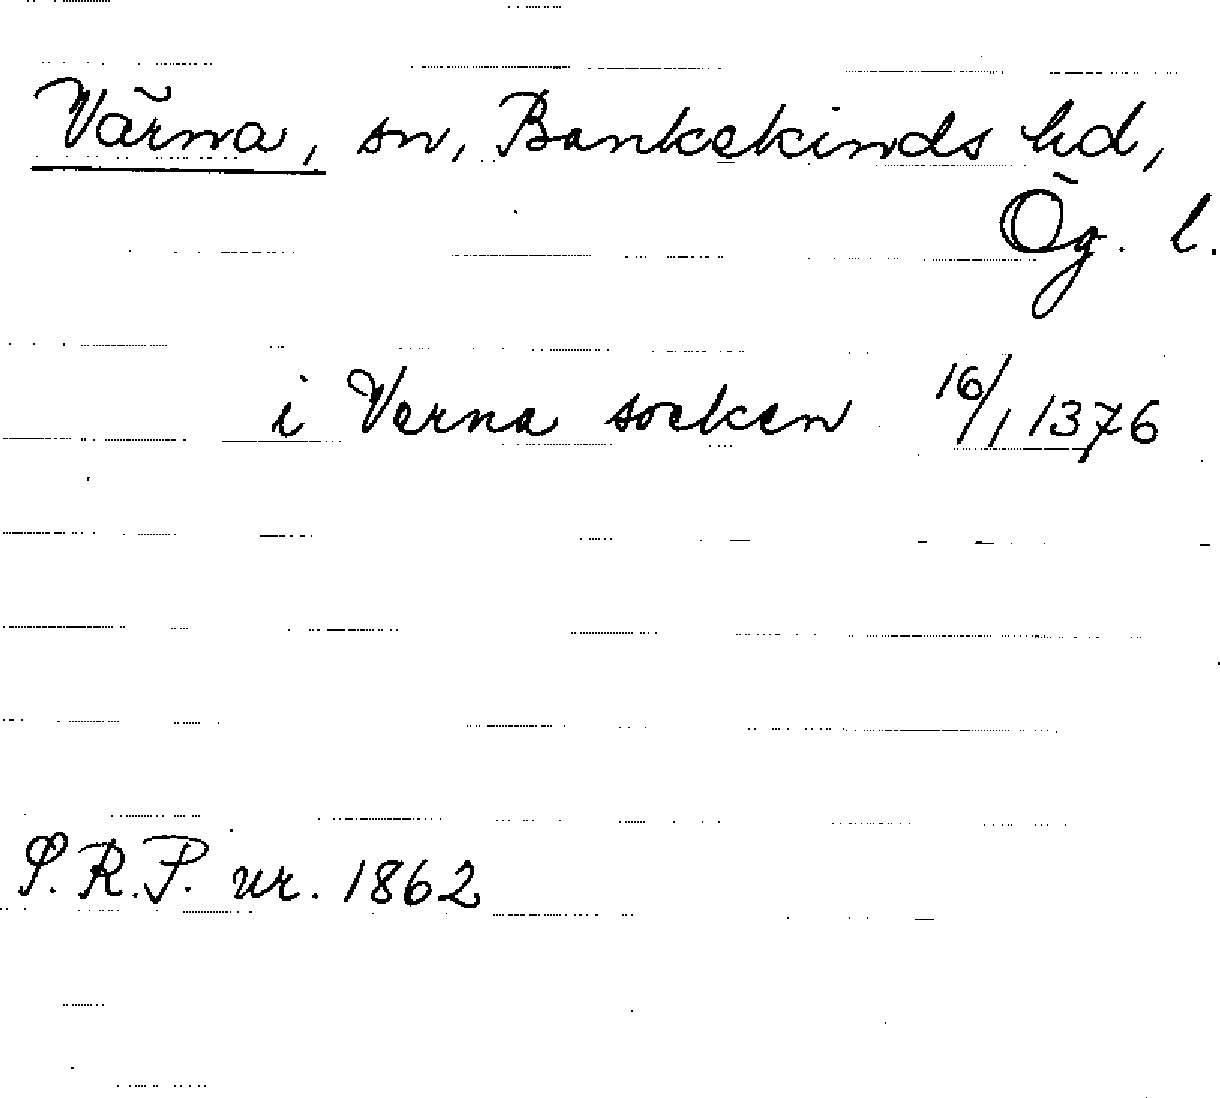 Värna, sn, Bankekinds hd,
Ög. l.
i Verna socken 16/1 1376
S.R.P. nr. 1862